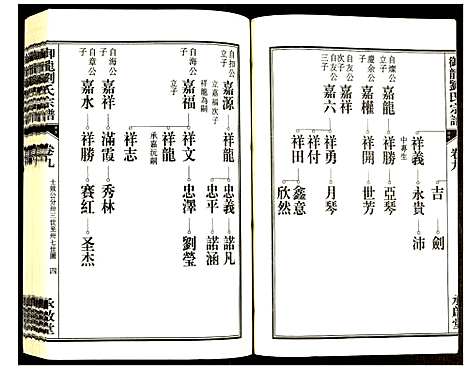 御龍劉氏宗譜
卷九
承啟堂
吉
劍
祥義
永貴
沛
中專生
自燦公
立子
嘉龍
祥勝
亞琴
慶余公
三子
嘉權
祥開
世芳
自友公
次子
祥勇
月琴
自友公
三子
嘉六
祥付
鑫意
祥田
欣然
自扣公
立子
嘉源
祥龍
忠義
諾凡
立嘉福次子
祥龍為嗣
忠平
諾涵
自海公
立子
嘉福
祥文
忠澤
劉瑩
祥龍
承嘉沅嗣
祥志
自海公
嘉祥
滿霞
秀林
自章公
嘉水
祥勝
賽紅
圣杰
御龍劉氏宗譜
卷九
四
承啟堂